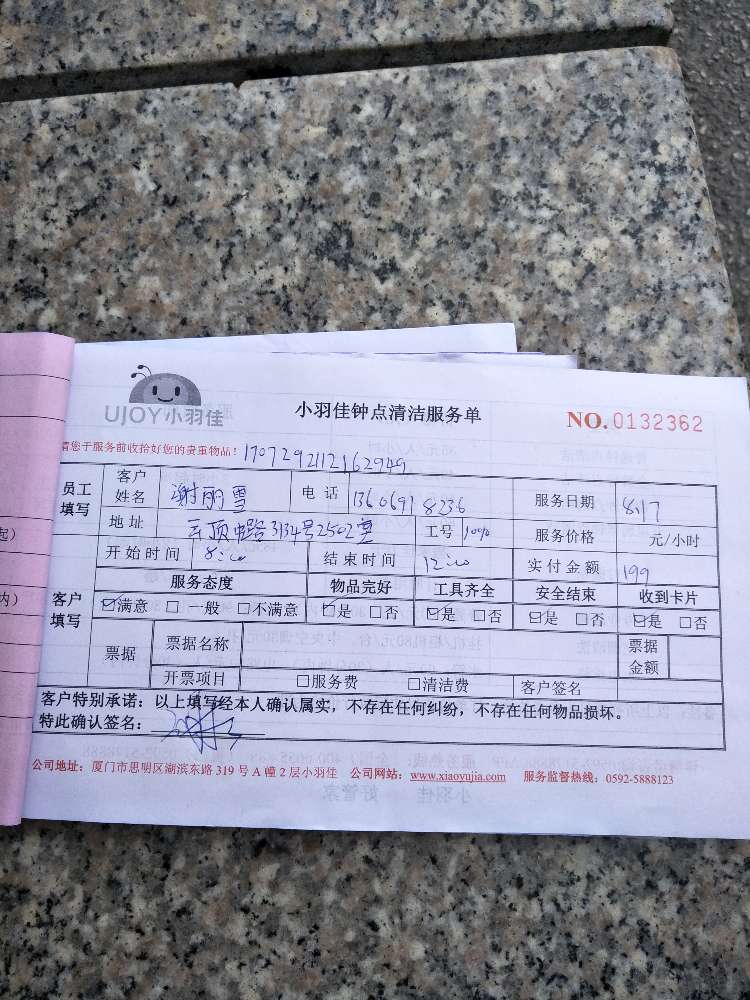 UJOY小羽佳
小羽佳钟点清洁服务单
NO.0132362
请您于服务前收拾好您的贵重物品！1707292112162949
员工填写 客户姓名 谢丽雪 电话 13606918236 服务日期 8.17
地址 云顶中路3134号2502室 工号 服务价格 元/小时
客户填写 开始时间 8:00 结束时间 12:00 实付金额 199
服务态度 物品完好 工具齐全 安全结束 收到卡片
☑满意 □一般 □不满意 ☑是 □否 ☑是 □否 ☑是 □否 ☑是 □否
票据 票据名称 票据金额
开票项目 □服务费 □清洁费 客户签名
客户特别承诺：以上填写经本人确认属实，不存在任何纠纷，不存在任何物品损坏。
特此确认签名：
公司地址：厦门市思明区湖滨东路319号A幢2层小羽佳 公司网站：www.xiaoyujia.com 服务监督热线：0592-5888123